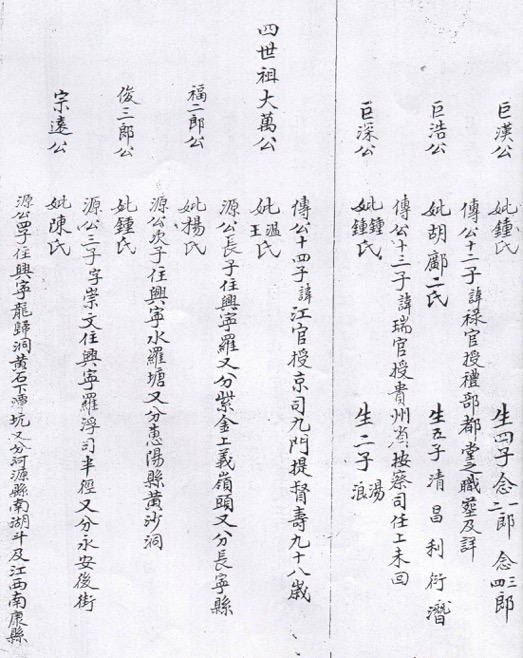 巨漢公 妣鍾氏 生四子念一二郎 念三四郎
傳公十二子諱祿官授禮部都堂之職塟及詳
巨浩公 妣胡鄺二氏 生五子清昌利衍濳
傳公十三子諱瑞官授貴州省按察司任上未回
巨深公 妣鍾鍾氏 生二子湯浪
傳公十四子諱江官授京司九門提督壽九十八歲
四世祖大萬公 妣溫王氏
源公長子住興寧羅又分紫金上義嶺頭又分長寧縣
福二郎公 妣楊氏
源公次子住興寧水羅塘又分惠陽縣黄沙洞
俊三郎公 妣鍾氏
源公三子字崇文住興寧羅浮司半徑又分永安後街
宗遠公 妣陳氏
源公四子住興寧龍歸洞黄石下潭坑又分河源縣南湖斗及江西南康縣